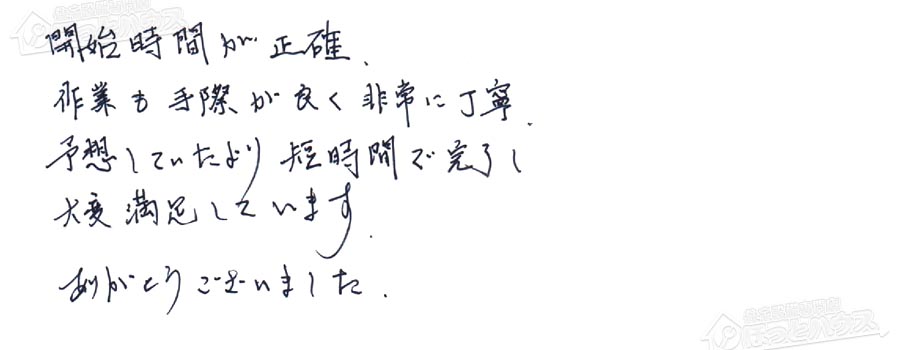 開始時間が正確、
作業も手際が良く非常に丁寧、
予想していたより短時間で完了し
大変満足しています。
ありがとうございました。
ほっとハウス
ほっとハウス